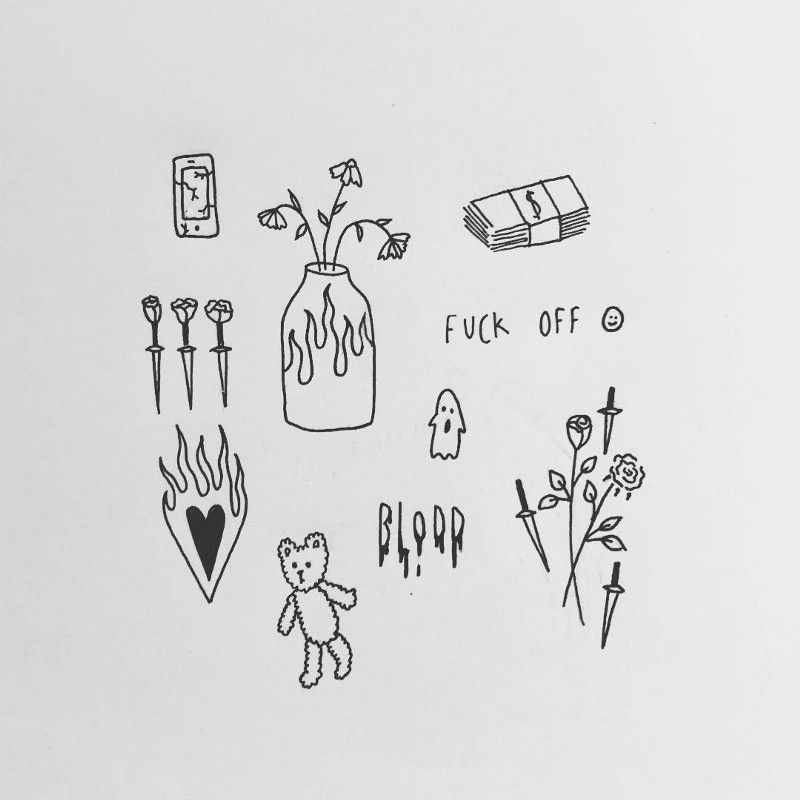 $
FUCK OFF
BLOOD